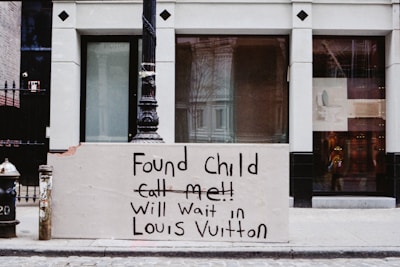 Found Child
call me!!
Will Wait in
Louis Vuitton
20